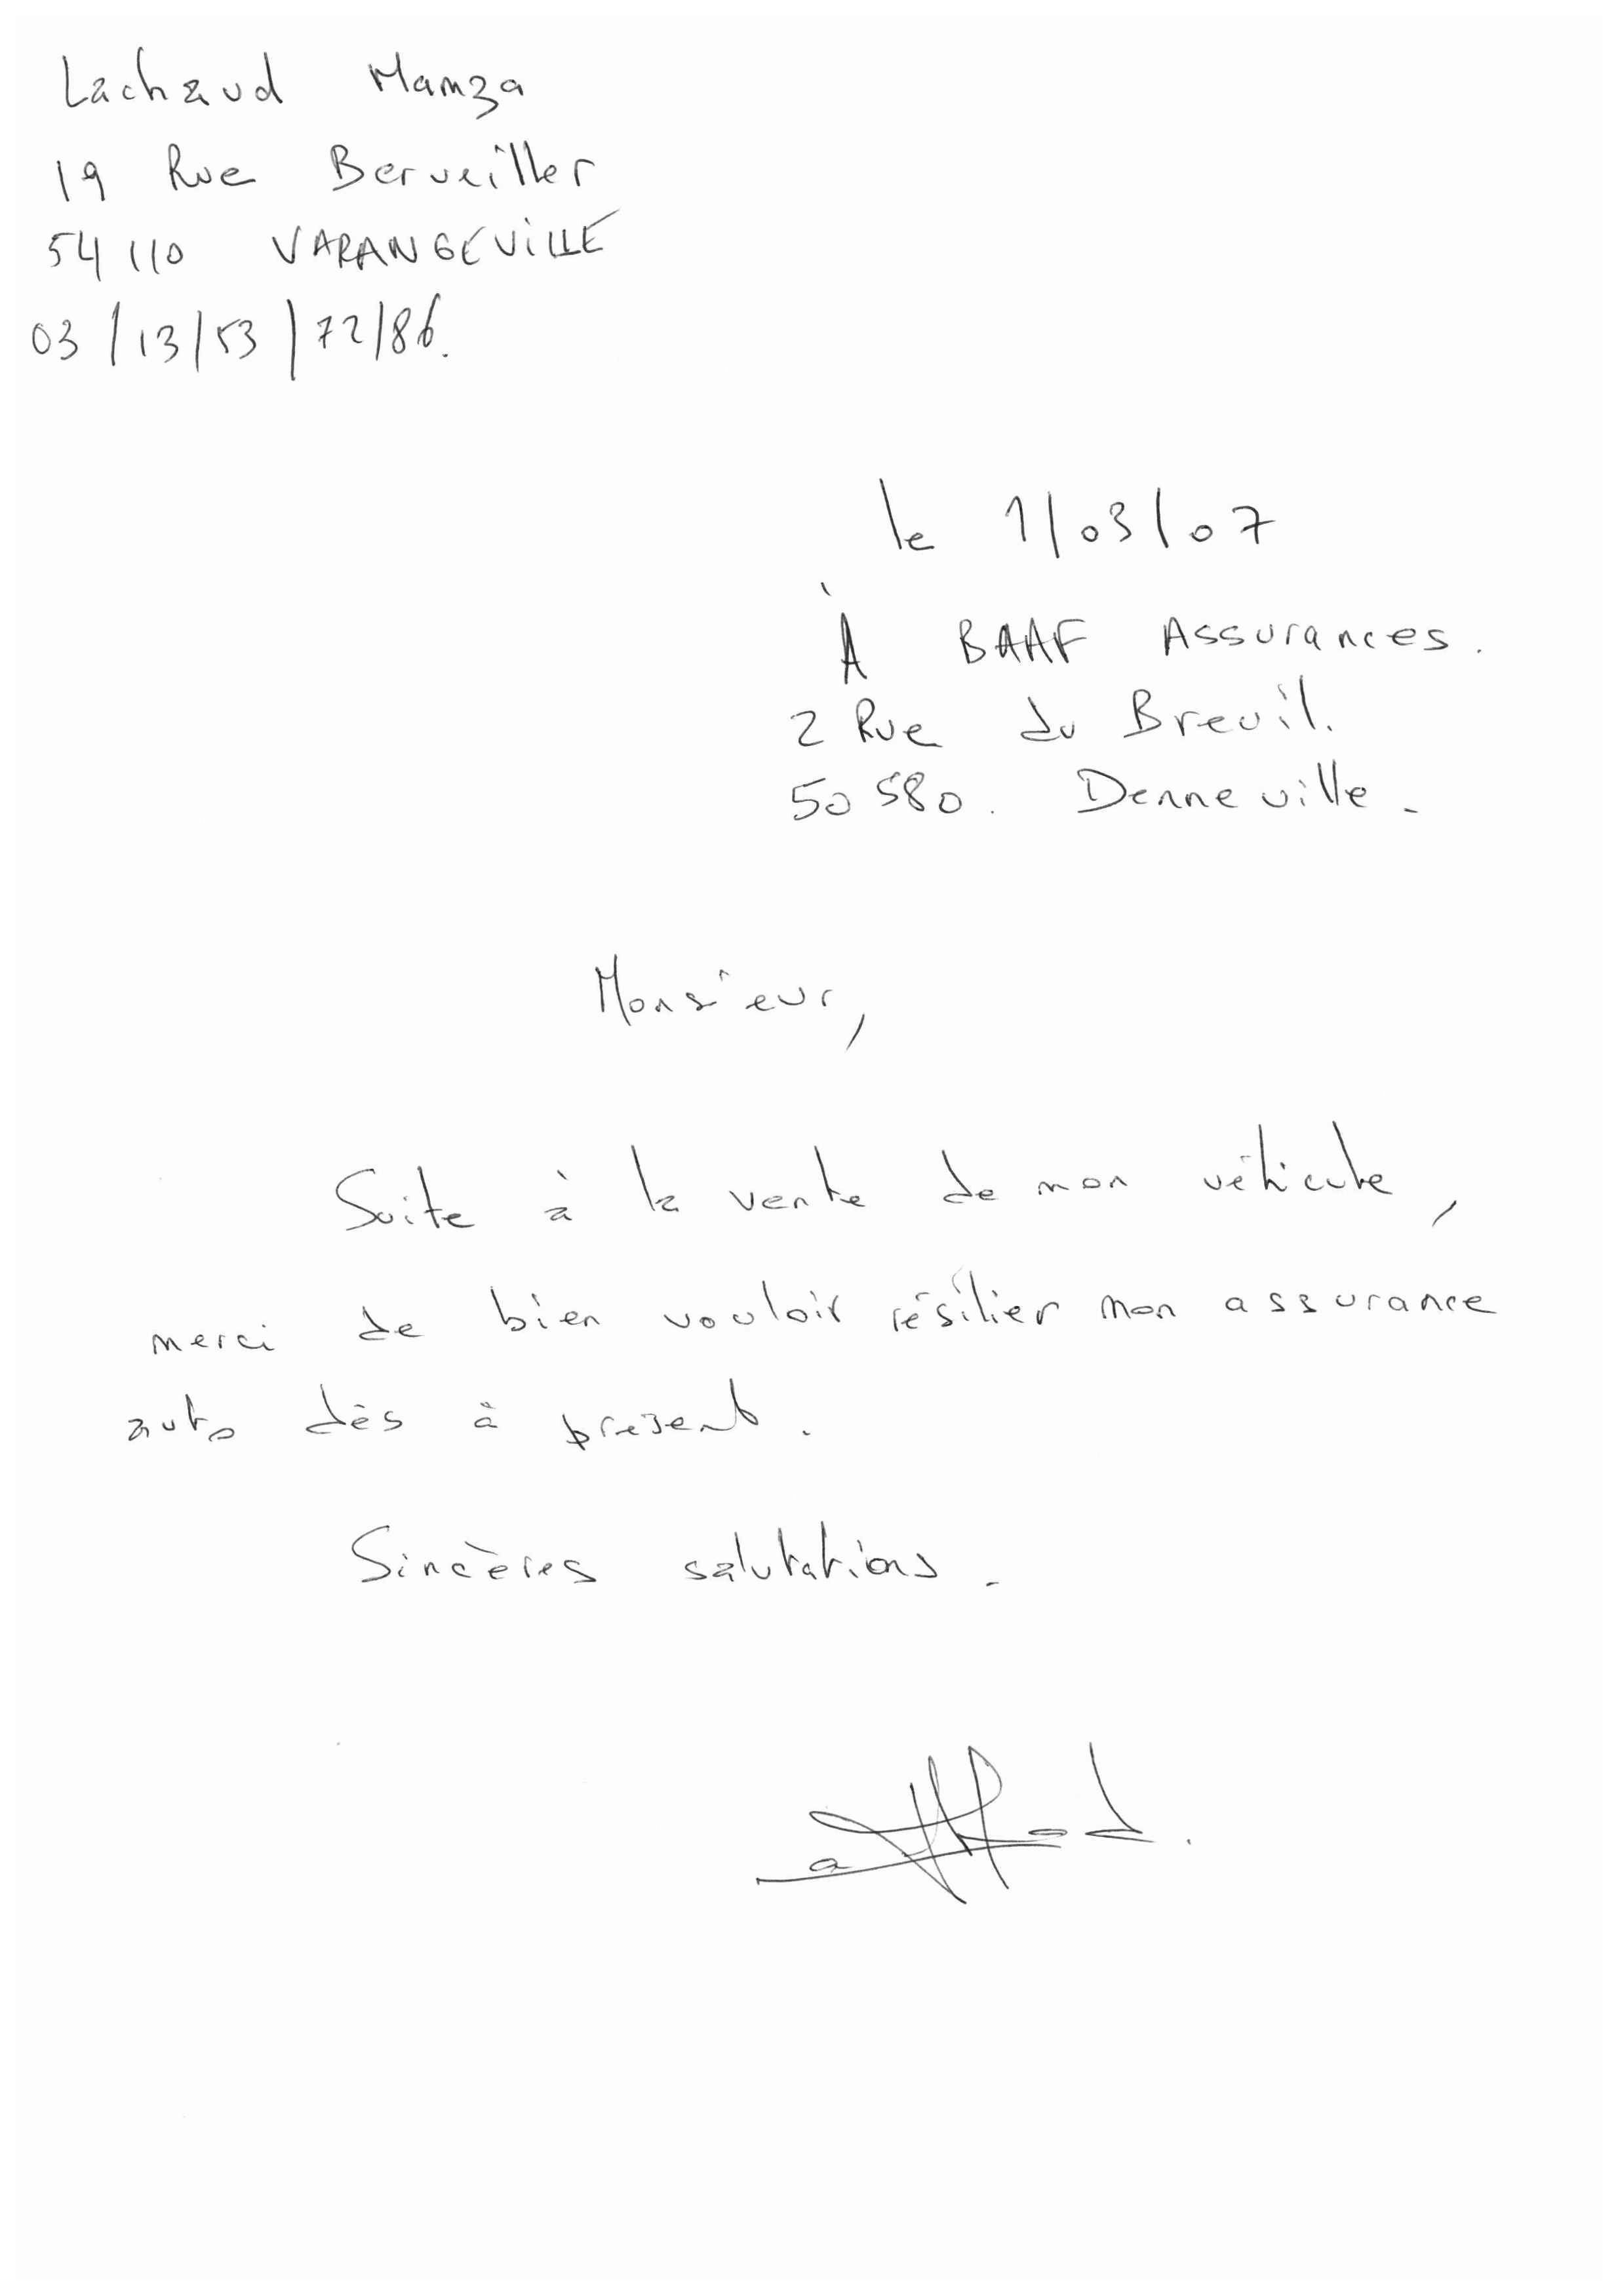 Lachaud Mamza
19 Rue Berveiller
54110 VARANGEVILLE
03/13/53/72/86.
le 1/03/07
À BAAF Assurances.
2 Rue du Breuil.
50580. Denneville.
Monsieur,
Suite à la vente de mon véhicule,
merci de bien vouloir résilier mon assurance
auto dès à présent.
Sincères salutations.